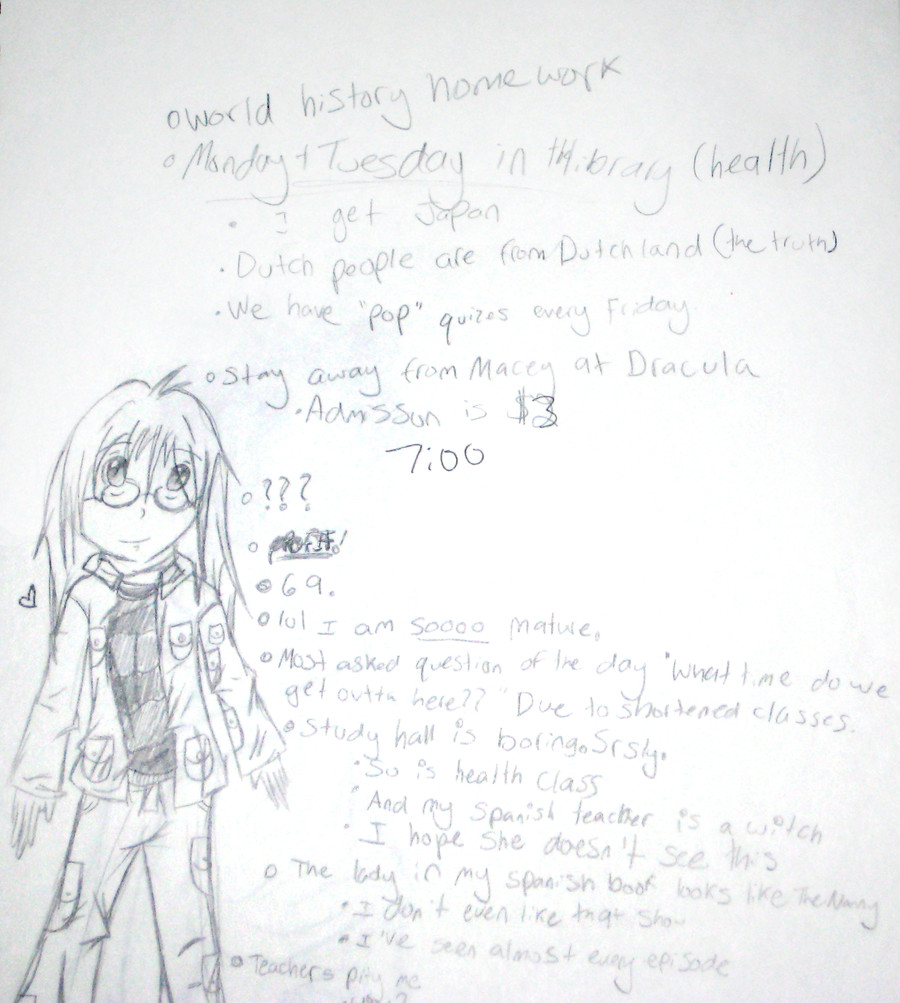 world history homework
Monday + Tuesday in library (health)
I get Japan
Dutch people are from Dutchland (the truth)
We have "pop" quizes every Friday.
Stay away from Macey at Dracula
Admssun is $3
7:00
???
PROFIT!
69.
lul I am soooo mature.
Most asked question of the day "What time do we
get outta here??" Due to shortened classes.
Study hall is boring. Srsly.
So is health class
And my spanish teacher is a witch
I hope she doesn't see this
The lady in my spanish book looks like The Nanny
I don't even like that show
I've seen almost every episode
Teachers pity me